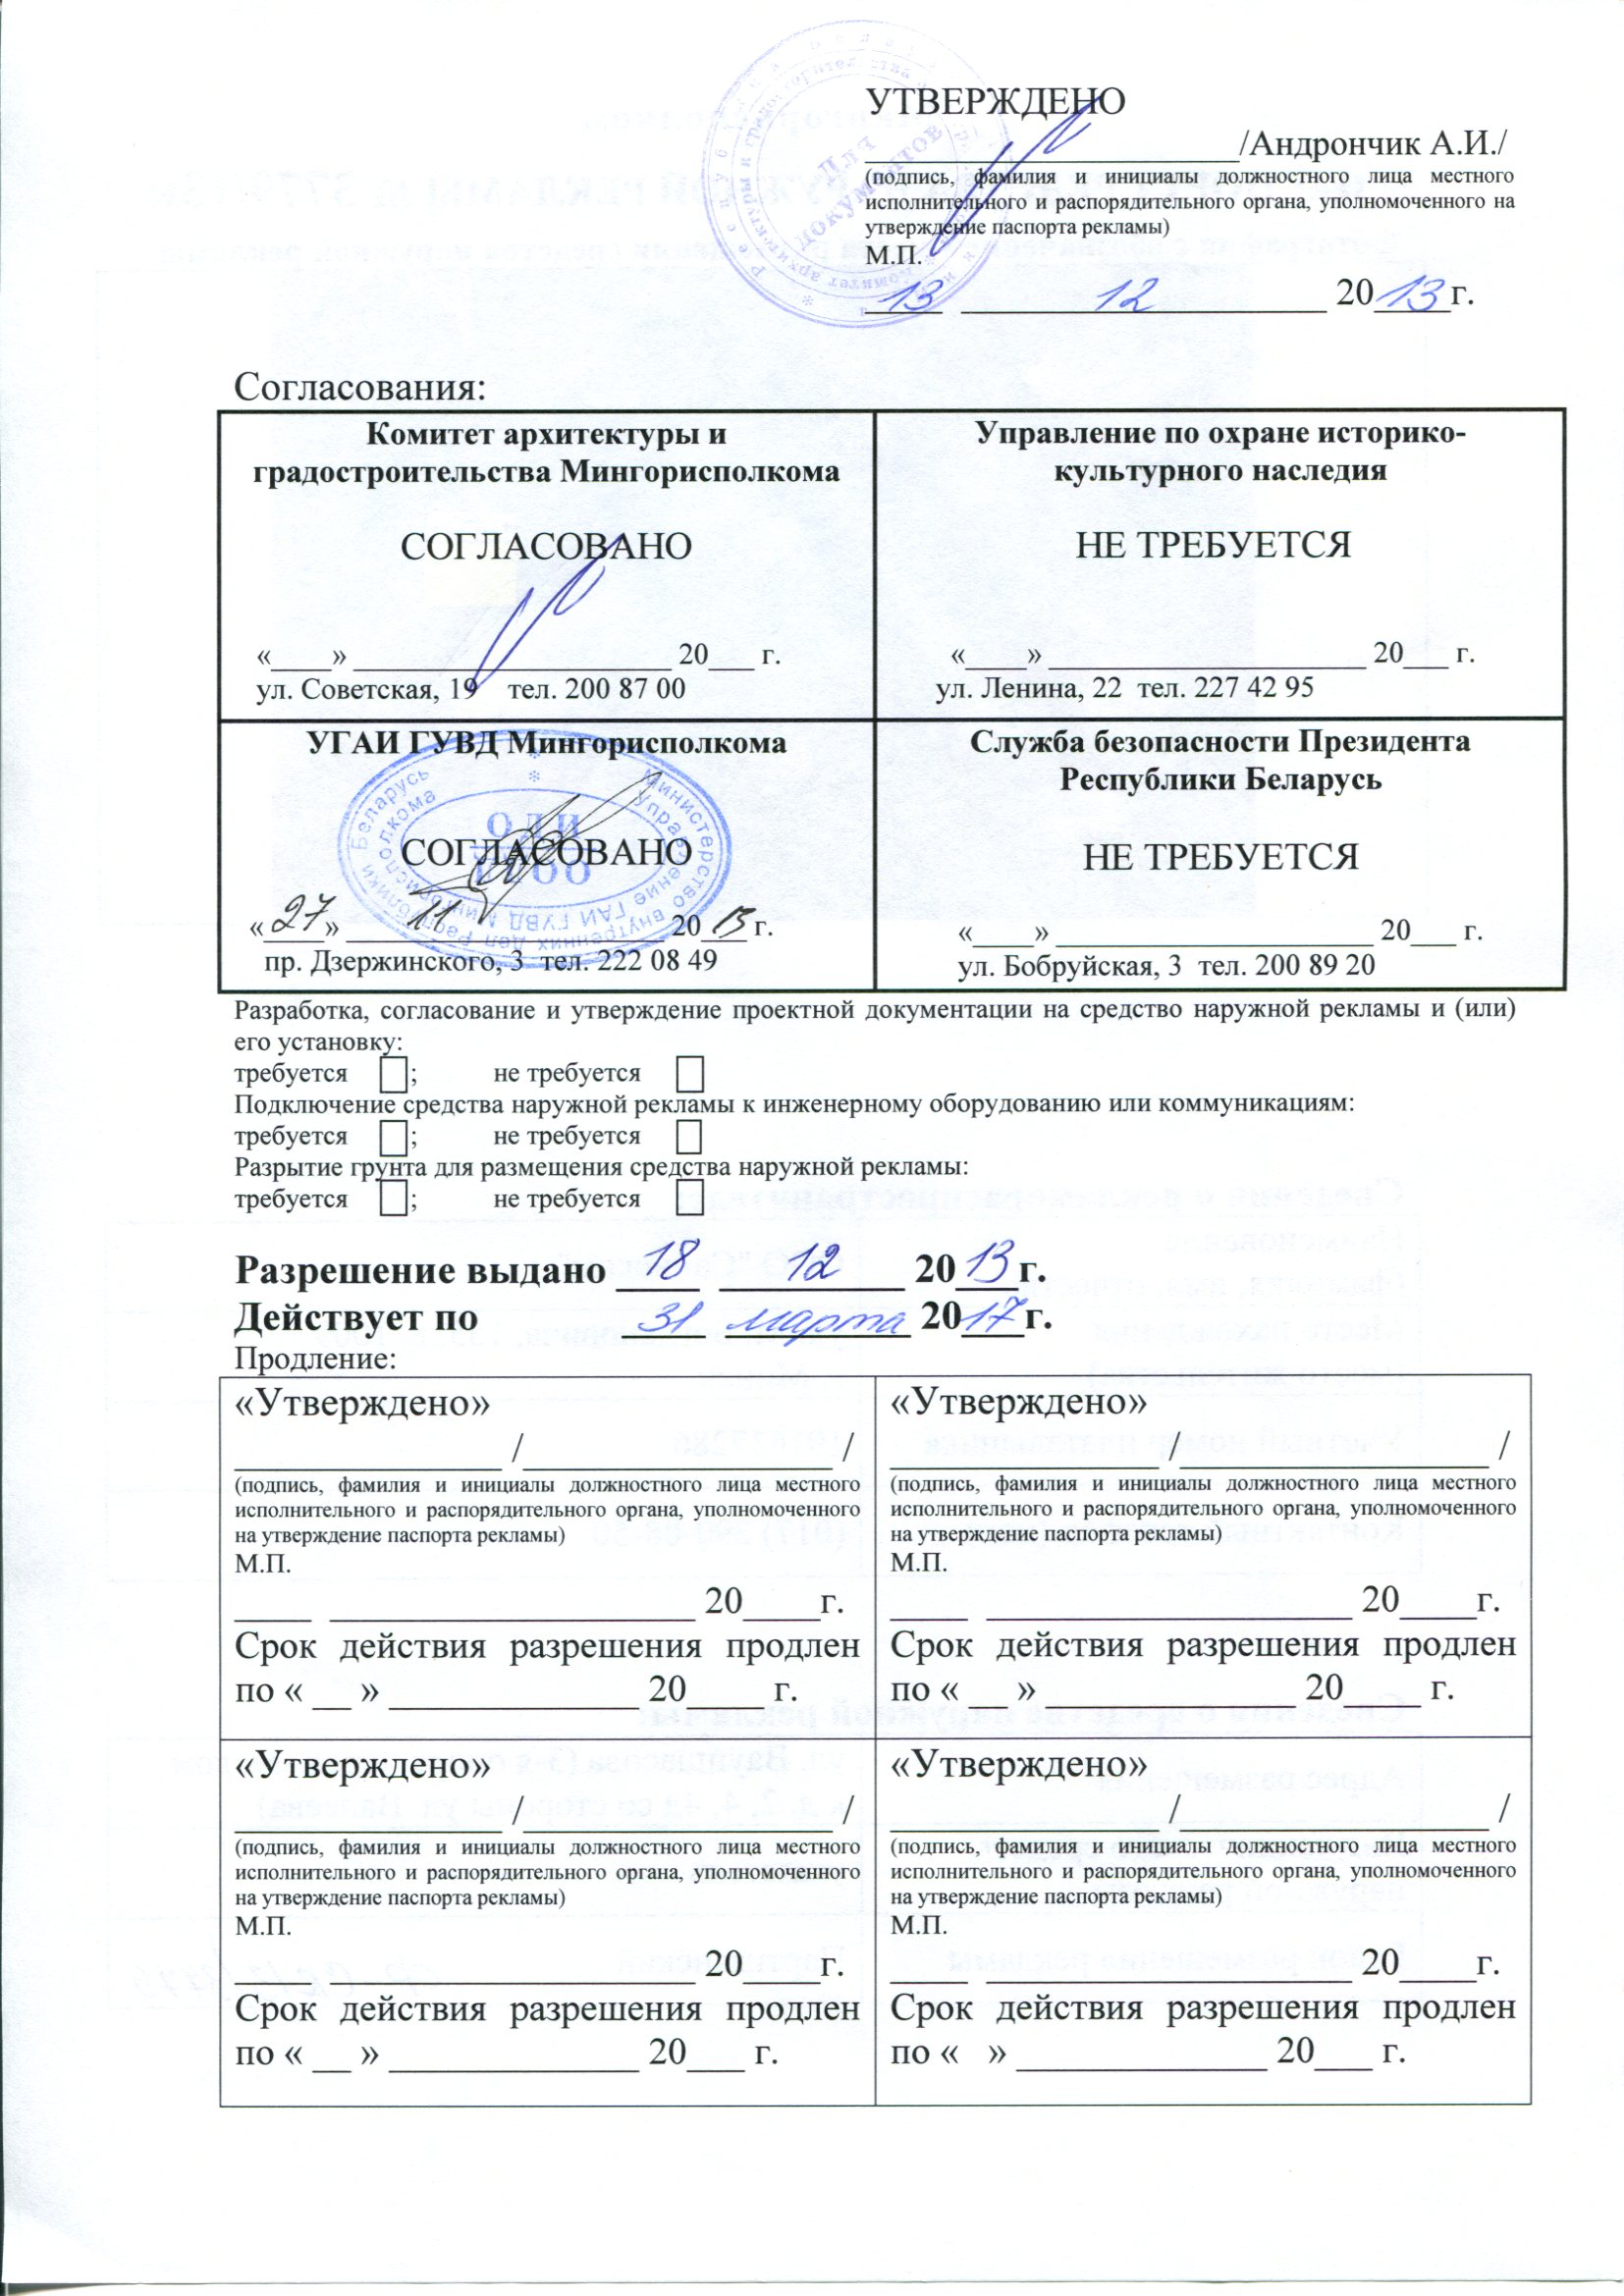 УТВЕРЖДЕНО
____________________/Андрончик А.И./
(подпись, фамилия и инициалы должностного лица местного
исполнительного и распорядительного органа, уполномоченного на
утверждение паспорта рекламы)
М.П.
13 12 2013г.
Для
документов
Согласования:
Комитет архитектуры и
градостроительства Мингорисполкома
СОГЛАСОВАНО
«____» ____________________ 20___ г.
ул. Советская, 19 тел. 200 87 00
Управление по охране историко-
культурного наследия
НЕ ТРЕБУЕТСЯ
«____» ____________________ 20___ г.
ул. Ленина, 22 тел. 227 42 95
УГАИ ГУВД Мингорисполкома
СОГЛАСОВАНО
«27» 11 2013 г.
пр. Дзержинского, 3 тел. 222 08 49
Министерство внутренних дел Республики Беларусь
Служба безопасности Президента
Республики Беларусь
НЕ ТРЕБУЕТСЯ
«____» ____________________ 20___ г.
ул. Бобруйская, 3 тел. 200 89 20
Разработка, согласование и утверждение проектной документации на средство наружной рекламы и (или)
его установку:
требуется ; не требуется
Подключение средства наружной рекламы к инженерному оборудованию или коммуникациям:
требуется ; не требуется
Разрытие грунта для размещения средства наружной рекламы:
требуется ; не требуется
Разрешение выдано 18 12 2013г.
Действует по 31 марта 2017г.
Продление:
«Утверждено»
______________ /________________ /
(подпись, фамилия и инициалы должностного лица местного
исполнительного и распорядительного органа, уполномоченного
на утверждение паспорта рекламы)
М.П.
____ ___________________ 20____г.
Срок действия разрешения продлен
по « __ » _____________ 20____ г.
«Утверждено»
______________ /________________ /
(подпись, фамилия и инициалы должностного лица местного
исполнительного и распорядительного органа, уполномоченного
на утверждение паспорта рекламы)
М.П.
____ ___________________ 20____г.
Срок действия разрешения продлен
по « __ » _____________ 20____ г.
«Утверждено»
______________ /________________ /
(подпись, фамилия и инициалы должностного лица местного
исполнительного и распорядительного органа, уполномоченного
на утверждение паспорта рекламы)
М.П.
____ ___________________ 20____г.
Срок действия разрешения продлен
по « __ » _____________ 20___ г.
«Утверждено»
_______________ /________________ /
(подпись, фамилия и инициалы должностного лица местного
исполнительного и распорядительного органа, уполномоченного
на утверждение паспорта рекламы)
М.П.
____ ___________________ 20____г.
Срок действия разрешения продлен
по « » _____________ 20___ г.